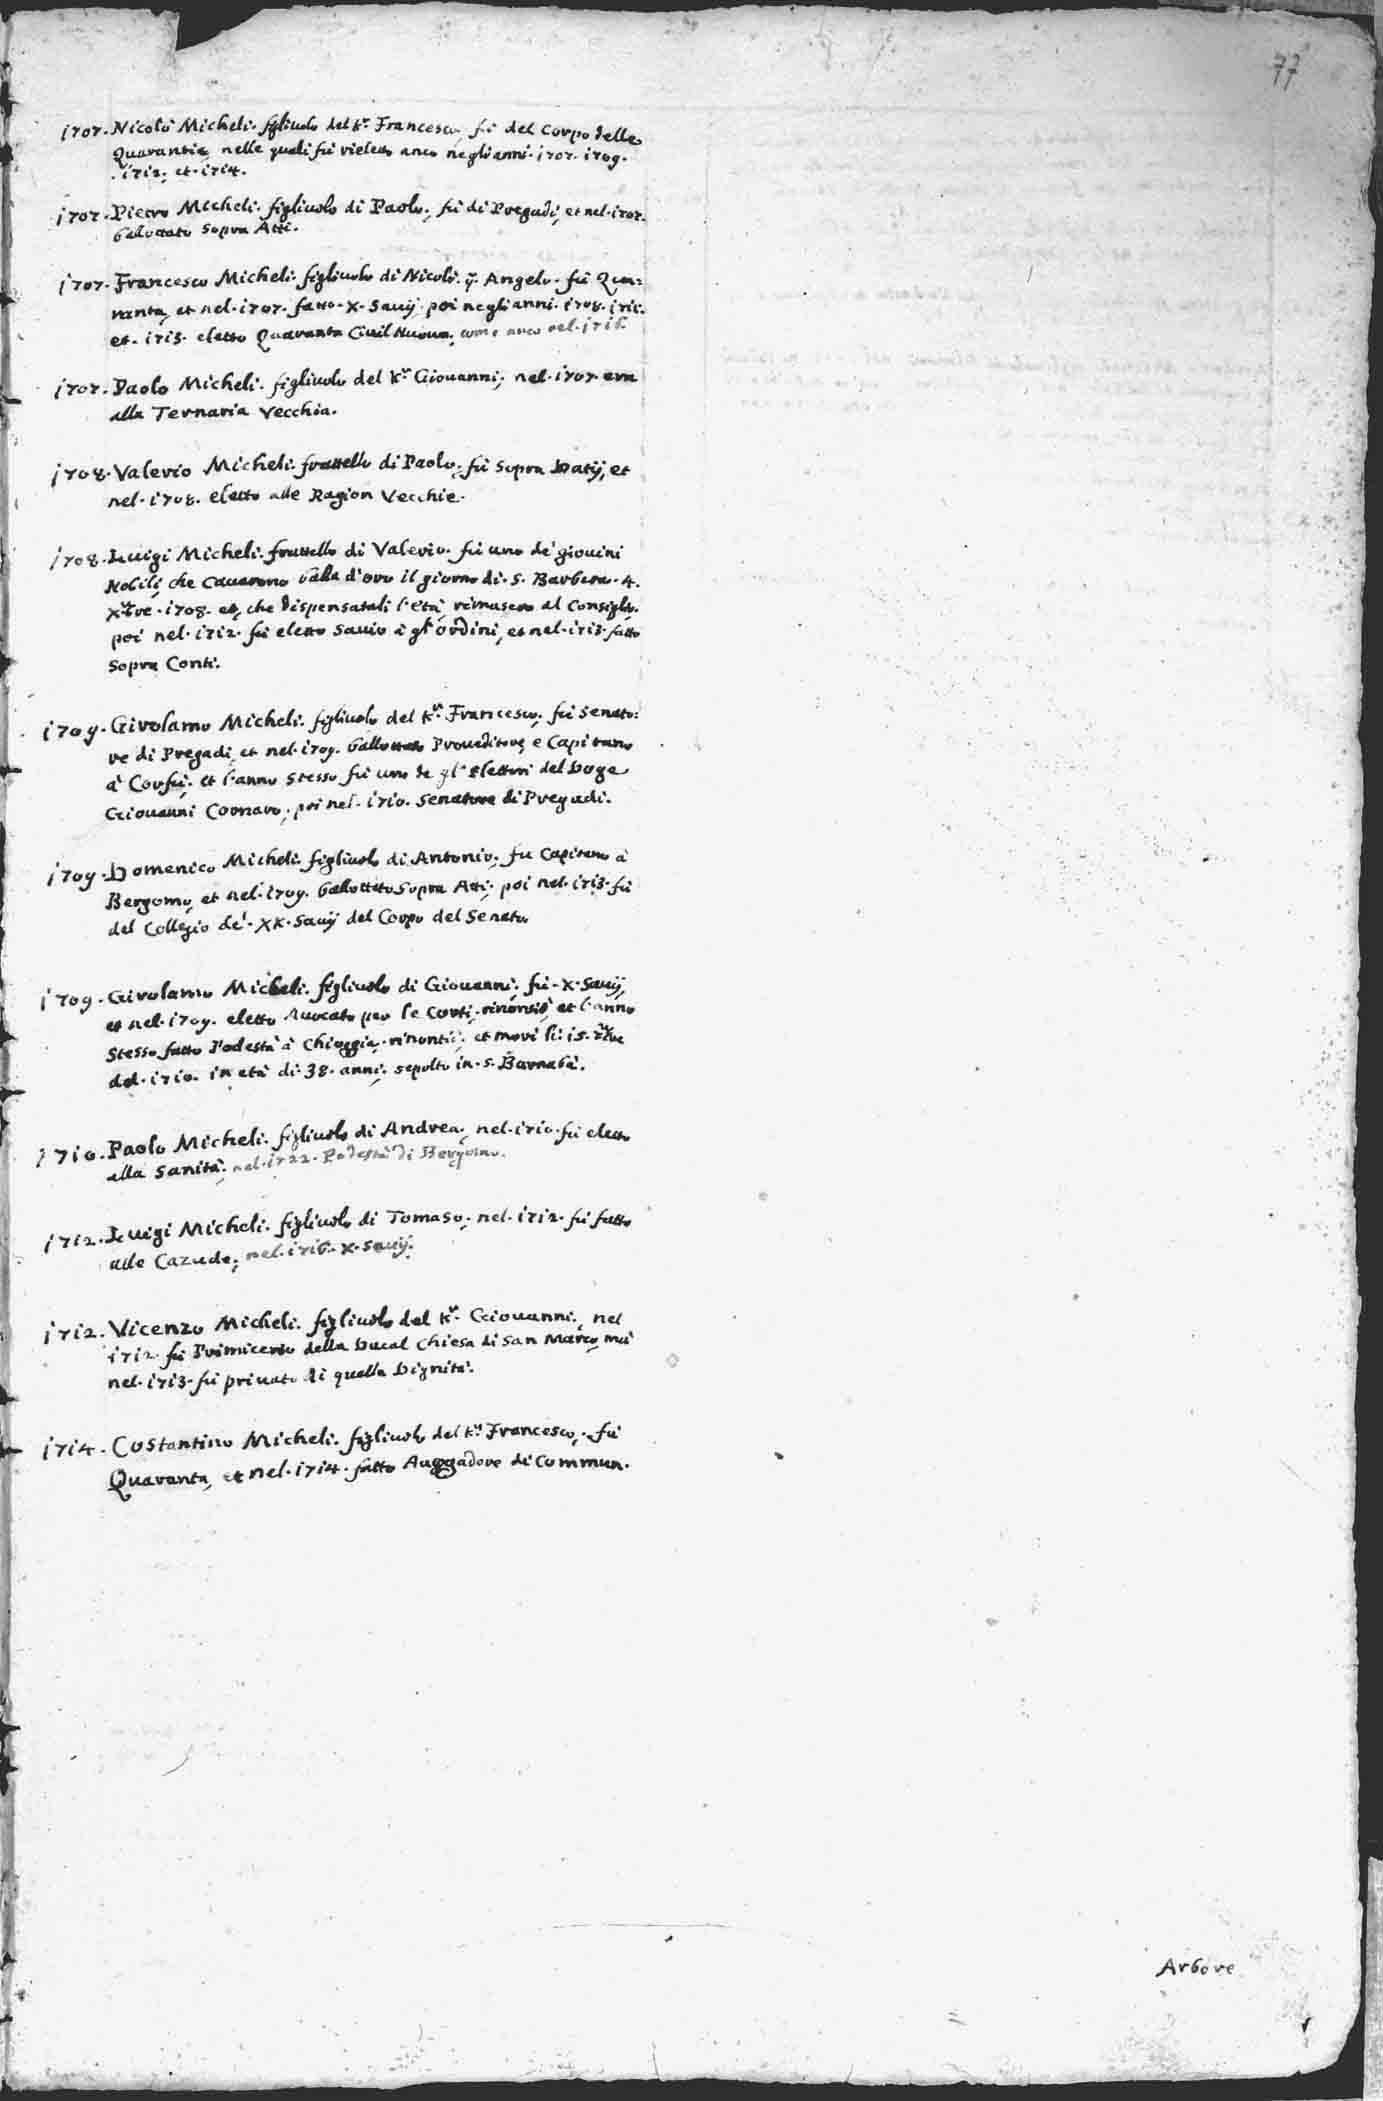 77
1707. Nicolò Micheli. figliuolo del Kr. Francesco, fù del Corpo delle
Quarantie, nelle quali fù rieletto anco negli anni. 1707. 1709.
1712. et. 1714.
1707. Pietro Micheli. figliuolo di Paolo, fù di Pregadi, et nel. 1707.
ballottato sopra Atti.
1707. Francesco Micheli. figliuolo di Nicolò. q. Angelo. fù Qua=
ranta, et nel. 1707. fatto. X. Savij. poi negli anni. 1708. 1711.
et. 1715. eletto Quaranta Civil Nuova, come anco nel. 1716.
1707. Paolo Micheli. figliuolo del Kr. Giovanni, nel. 1707. era
alla Ternaria Vecchia.
1708. Valerio Micheli. frattello di Paolo, fù sopra Datij, et
nel. 1708. eletto alle Ragion Vecchie.
1708. Luigi Micheli. frattello di Valerio. fù uno de' giovini
Nobili, che cavarono balla d'oro il giorno di. S. Barbara. 4.
Xbre. 1708. et, che dispensatali l'età, rimasero al Consiglio.
poi nel. 1712. fù eletto Savio à gl'ordini, et nel. 1713. fatto
sopra Conti.
1709. Girolamo Micheli. figliuolo del Kr. Francesco, fù Senato=
re di Pregadi, et nel. 1709. ballottato Proveditore, e Capitano
à Corfù. et l'anno stesso fù uno de gl'Elettori del Doge
Giovanni Cornaro, poi nel. 1710. Senatore di Pregadi.
1709. Domenico Micheli. figliuolo di Antonio, fu Capitano à
Bergomo, et nel. 1709. ballottato sopra Atti, poi nel. 1713. fù
del Collegio de'. XX. Savij del Corpo del Senato.
1709. Girolamo Micheli. figliuolo di Giovanni. fù. X. Savij,
et nel. 1709. eletto Avocato per le Corti, rinontiò, et l'anno
stesso fatto Podestà à Chioggia, rinontiò, et morì li. 15.
del. 1710. in età di. 38. anni, sepolto in. S. Barnabà.
1710. Paolo Micheli. figliuolo di Andrea, nel. 1710. fù eletto
alla Sanità, nel. 1722. Podestà di Bergomo.
1712. Luigi Micheli. figliuolo di Tomaso, nel. 1712. fù fatto
alle Cazude, nel. 1716. X. Savij.
1712. Vicenzo Micheli. figliuolo del Kr. Giovanni, nel
1712. fù Primicerio della Ducal Chiesa di San Marco, mà
nel. 1713. fù privato di quella Dignità.
1714. Costantino Micheli. figliuolo del Kr. Francesco, fù
Quaranta, et nel. 1714. fatto Auogadore di Commun.
Arbore